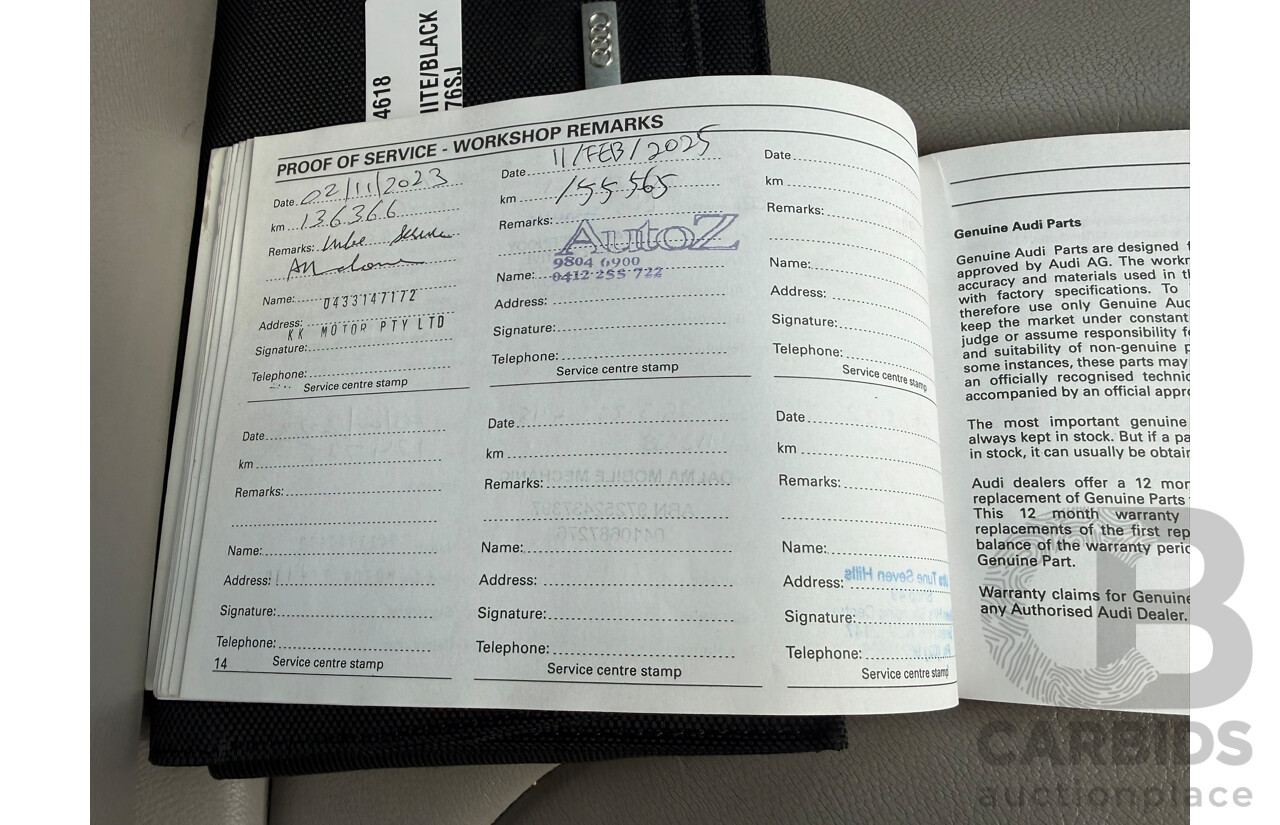 4618
IITE/BLACK
76SJ
PROOF OF SERVICE - WORKSHOP REMARKS
Date 02/11/2023
km 136366
Remarks: Lube Service
All done
Name: 0433147172
Address:
KK MOTOR PTY LTD
Signature:
Telephone:
Service centre stamp
Date 11/FEB/2025
km 155 565
Remarks:
AutoZ
9804 6900
Name: 0412 255 722
Address:
Signature:
Telephone:
Service centre stamp
Date
km
Remarks:
Name:
Address:
Signature:
Telephone:
Service centre stamp
Date
km
Remarks:
Name:
Address:
Signature:
Telephone:
14
Service centre stamp
Date
km
Remarks:
Name:
Address:
Signature:
Telephone:
Service centre stamp
Date
km
Remarks:
Name:
Address:
Signature:
Telephone:
Service centre stamp
Genuine Audi Parts
Genuine Audi Parts are designed
approved by Audi AG. The workr
accuracy and materials used in th
with factory specifications. To
therefore use only Genuine Aud
keep the market under constant
judge or assume responsibility fo
and suitability of non-genuine p
some instances, these parts may
an officially recognised technic
accompanied by an official appro
The most important genuine
always kept in stock. But if a pa
in stock, it can usually be obtain
Audi dealers offer a 12 mon
replacement of Genuine Parts
This 12 month warranty
replacements of the first rep
balance of the warranty perio
Genuine Part.
Warranty claims for Genuine
any Authorised Audi Dealer.
CARBIDS
auctionplace